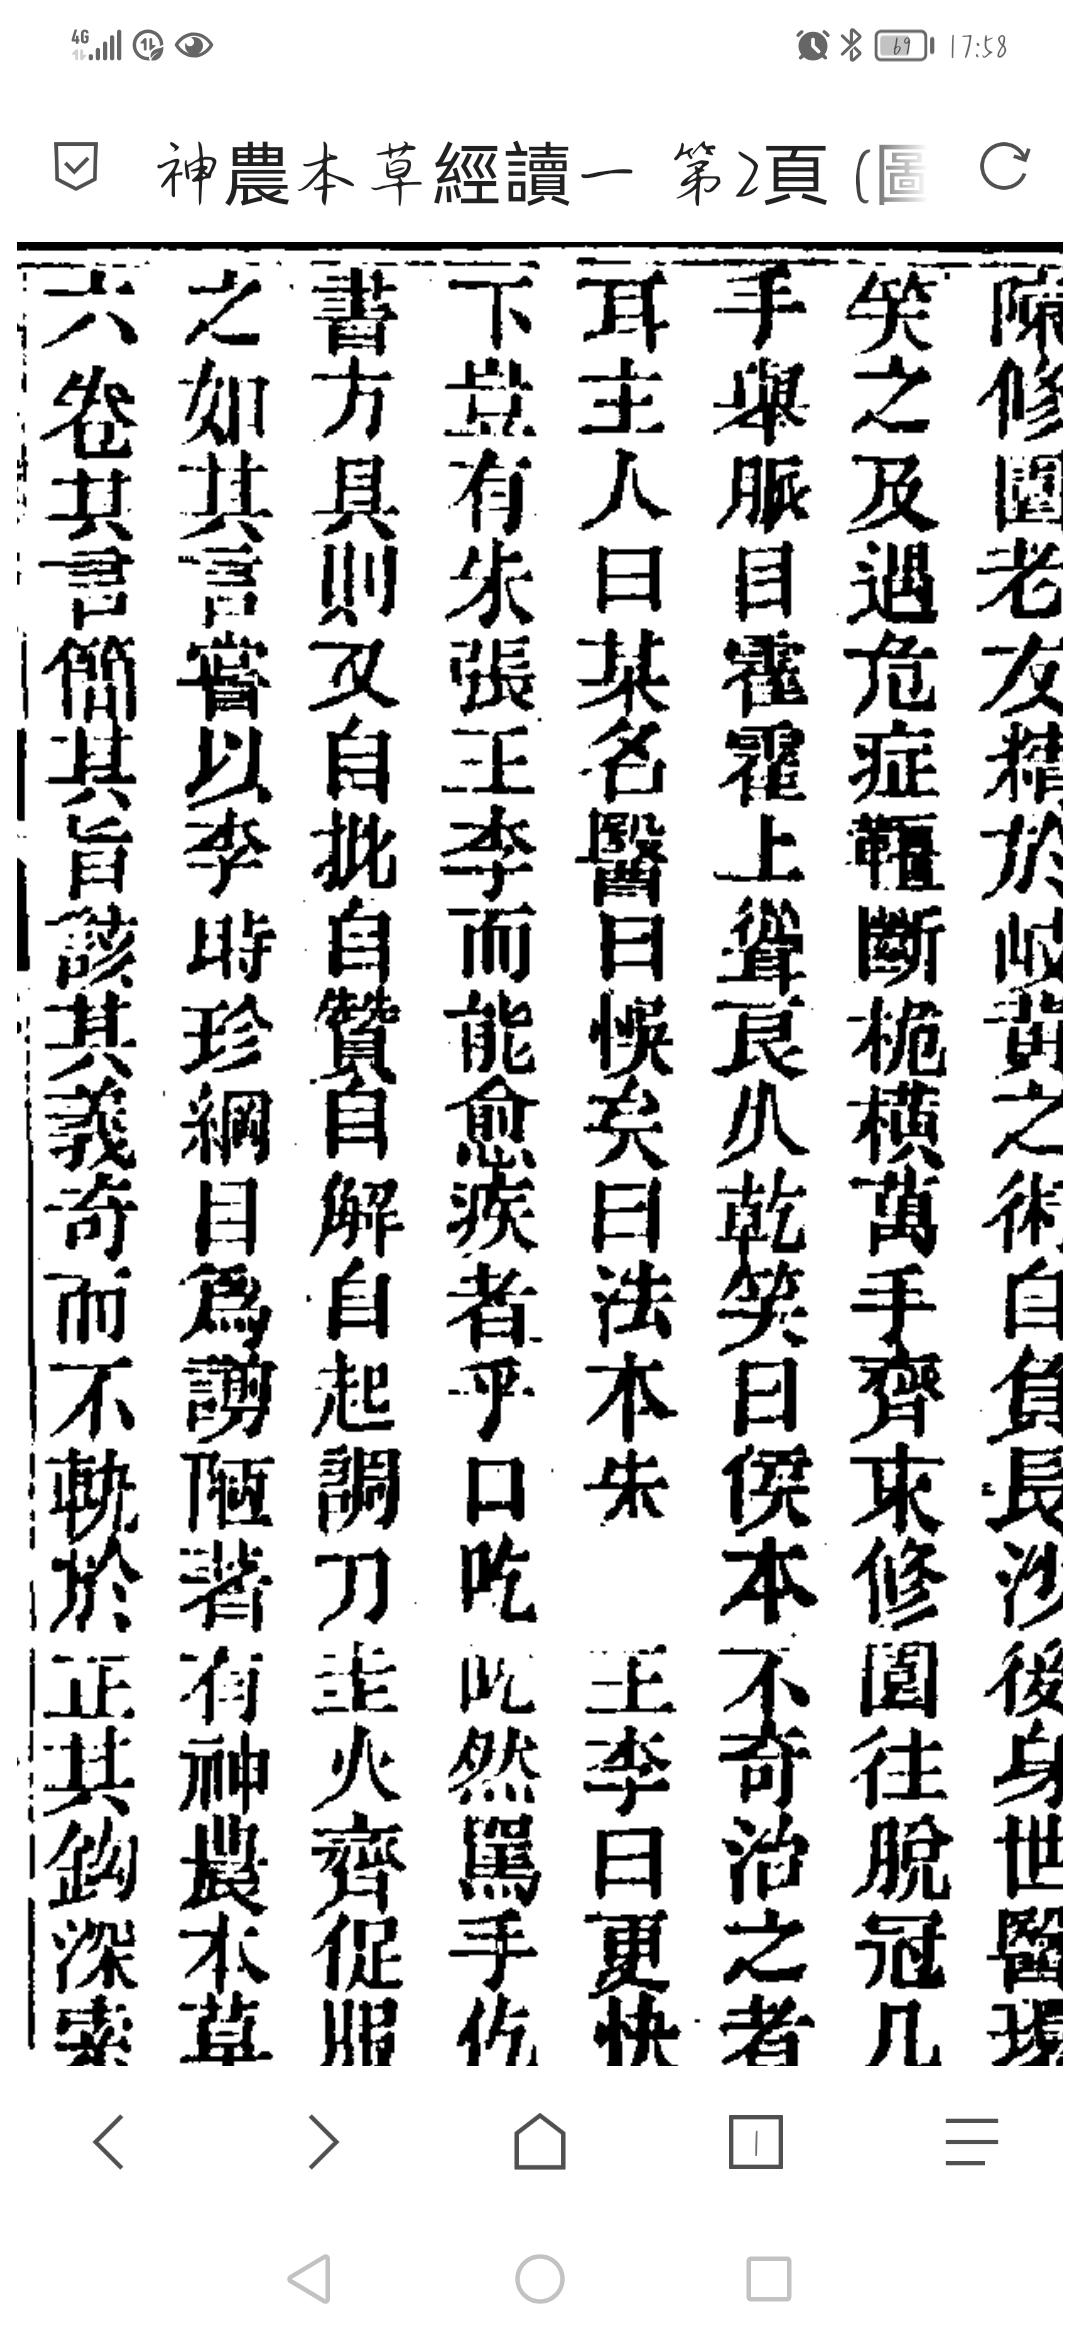 4G 69 17:58
神農本草經讀一 第2頁 (圖
陳修園老友精於岐黃之術自負長沙後身世醫環
笑之及遇危症鞱斷桅橫萬手齊束修園往脫冠几
手舉脈目霍霍上聳良久乾笑曰候本不奇治之者
耳主人曰某名醫曰悞矣曰法本朱 王李曰更快
下豈有朱張王李而能愈疾者乎口吃吃然罵手仡
書方具則又自批自贊自解自起調刀圭火齊促服
之如其言嘗以李時珍綱目為謭陋著有神農本草
六卷其言簡其旨該其義奇而不軌於正其鈎深索
1